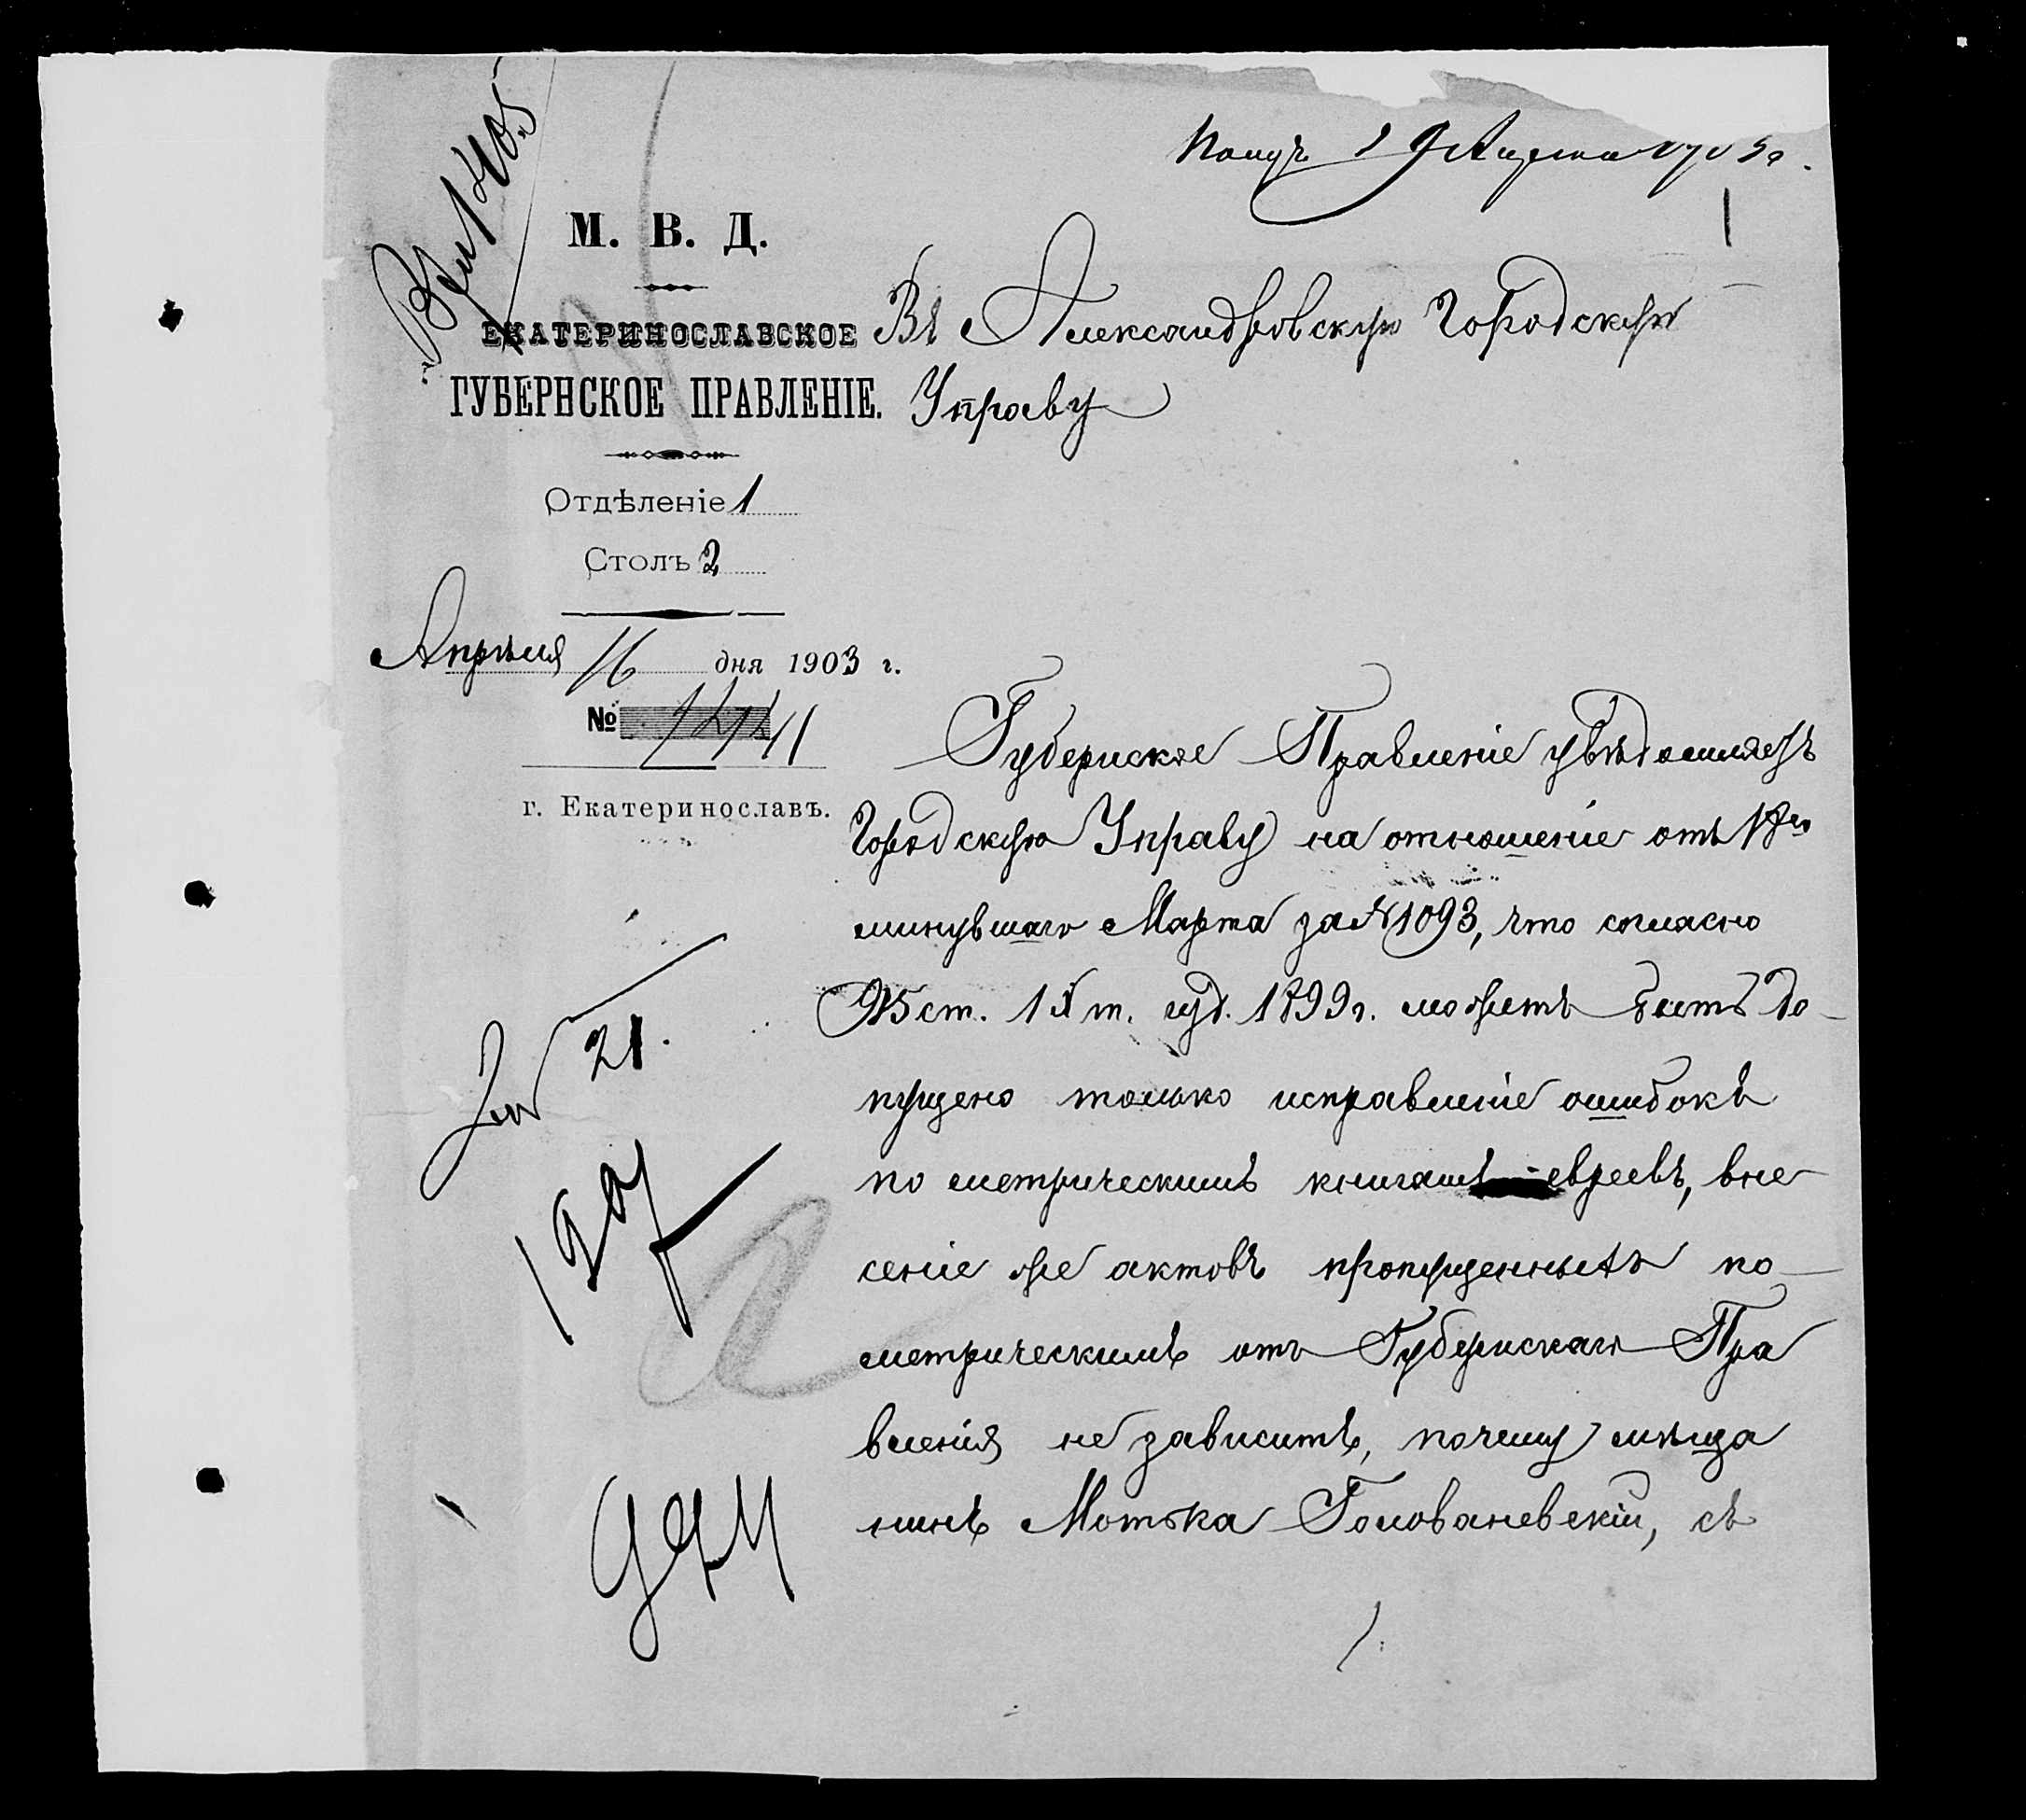 Получ. 19 Апреля 1903 г.
1
М. В. Д.
ЕКАТЕРИНОСЛАВСКОЕ
ГУБЕРНСКОЕ ПРАВЛЕНІЕ.
Отдѣленіе 1
Столъ 2
Апрѣля 16 дня 1903 г.
№
г. Екатеринославъ.
Въ Александровскую Городскую
Управу
Губернское Правленіе увѣдомляетъ
Городскую Управу на отношеніе отъ
минувшаго Марта за № 1093, что согласно
915 ст. IX т. изд. 1899 г. можетъ быть до-
пущено только исправленіе ошибокъ
по метрическимъ книгамъ евреевъ, вне
сеніе же актовъ пропущенныхъ по
метрическимъ отъ Губернскаго Пра
вленія не зависитъ, почему мѣща
нинъ Мотька Голованевскій, съ
21.
129